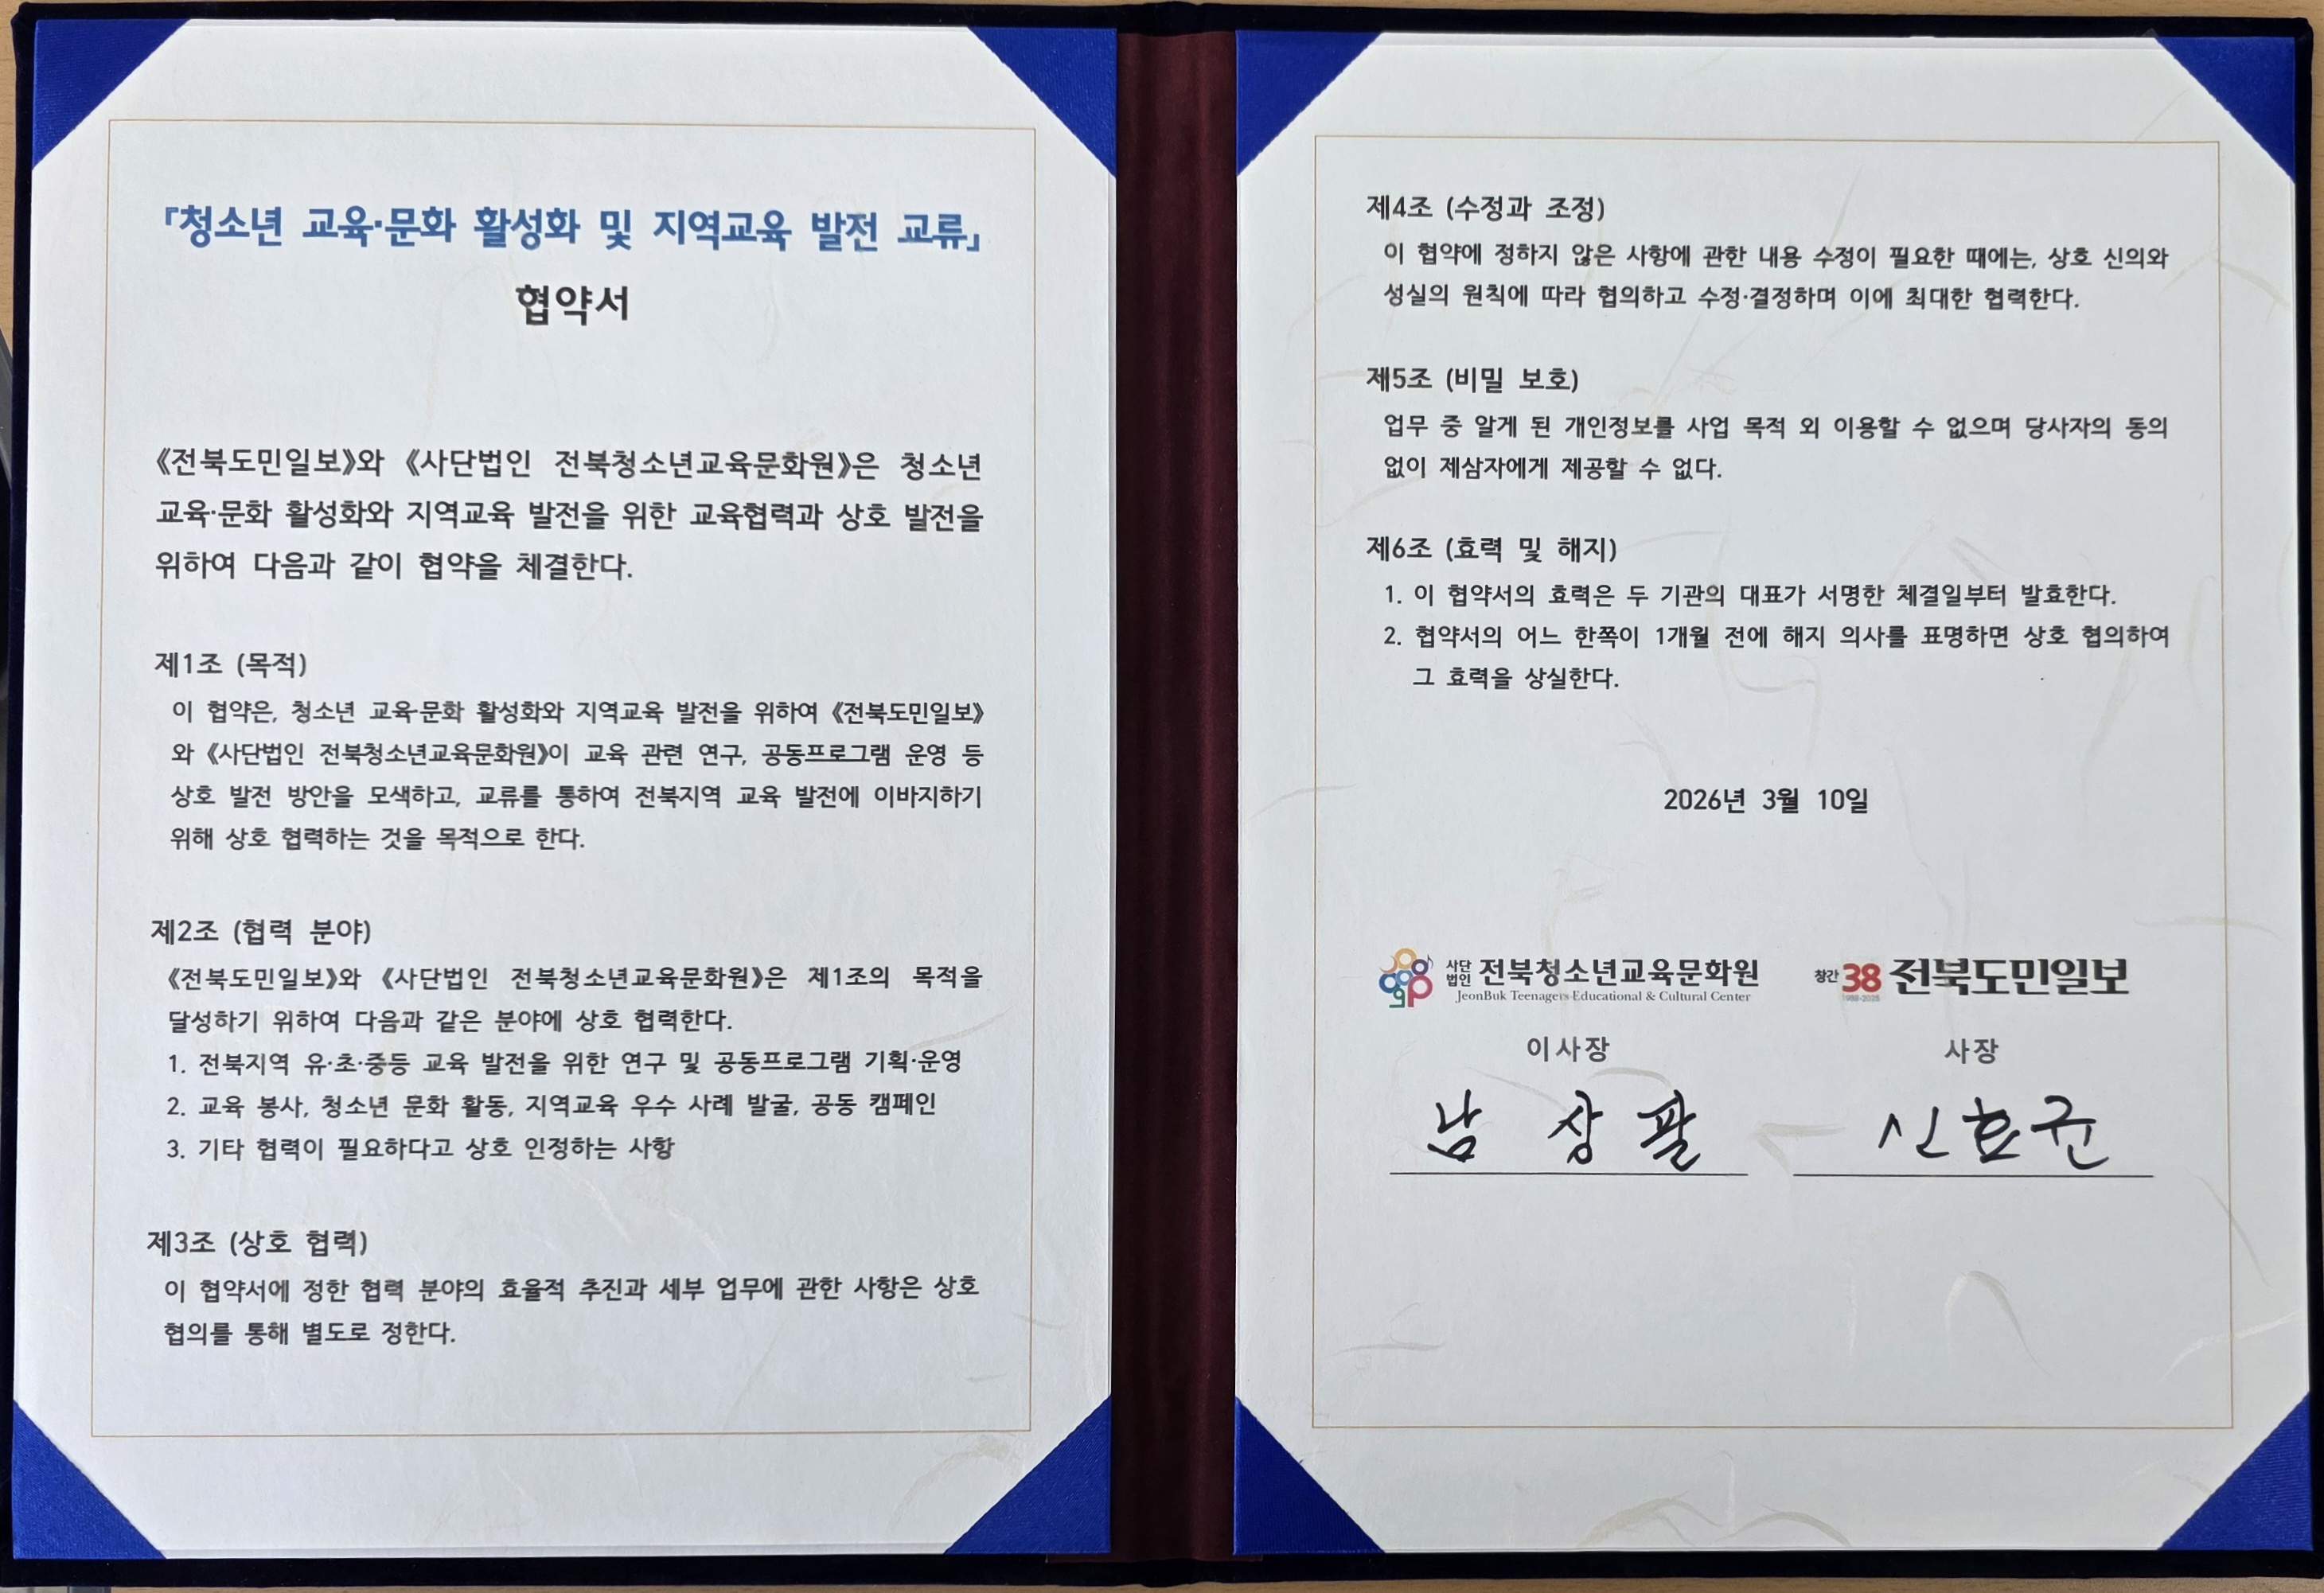 『청소년 교육·문화 활성화 및 지역교육 발전 교류』
협약서
《전북도민일보》와 《사단법인 전북청소년교육문화원》은 청소년
교육·문화 활성화와 지역교육 발전을 위한 교육협력과 상호 발전을
위하여 다음과 같이 협약을 체결한다.
제1조 (목적)
이 협약은, 청소년 교육·문화 활성화와 지역교육 발전을 위하여 《전북도민일보》
와 《사단법인 전북청소년교육문화원》이 교육 관련 연구, 공동프로그램 운영 등
상호 발전 방안을 모색하고, 교류를 통하여 전북지역 교육 발전에 이바지하기
위해 상호 협력하는 것을 목적으로 한다.
제2조 (협력 분야)
《전북도민일보》와 《사단법인 전북청소년교육문화원》은 제1조의 목적을
달성하기 위하여 다음과 같은 분야에 상호 협력한다.
1. 전북지역 유·초·중등 교육 발전을 위한 연구 및 공동프로그램 기획·운영
2. 교육 봉사, 청소년 문화 활동, 지역교육 우수 사례 발굴, 공동 캠페인
3. 기타 협력이 필요하다고 상호 인정하는 사항
제3조 (상호 협력)
이 협약서에 정한 협력 분야의 효율적 추진과 세부 업무에 관한 사항은 상호
협의를 통해 별도로 정한다.
제4조 (수정과 조정)
이 협약에 정하지 않은 사항에 관한 내용 수정이 필요한 때에는, 상호 신의와
성실의 원칙에 따라 협의하고 수정·결정하며 이에 최대한 협력한다.
제5조 (비밀 보호)
업무 중 알게 된 개인정보를 사업 목적 외 이용할 수 없으며 당사자의 동의
없이 제삼자에게 제공할 수 없다.
제6조 (효력 및 해지)
1. 이 협약서의 효력은 두 기관의 대표가 서명한 체결일부터 발효한다.
2. 협약서의 어느 한쪽이 1개월 전에 해지 의사를 표명하면 상호 협의하여
그 효력을 상실한다.
2026년 3월 10일
사단법인 전북청소년교육문화원
JeonBuk Teenagers Educational & Cultural Center
이사장
남 상 팔
창간 38 전북도민일보
1988-2026
사장
신효균